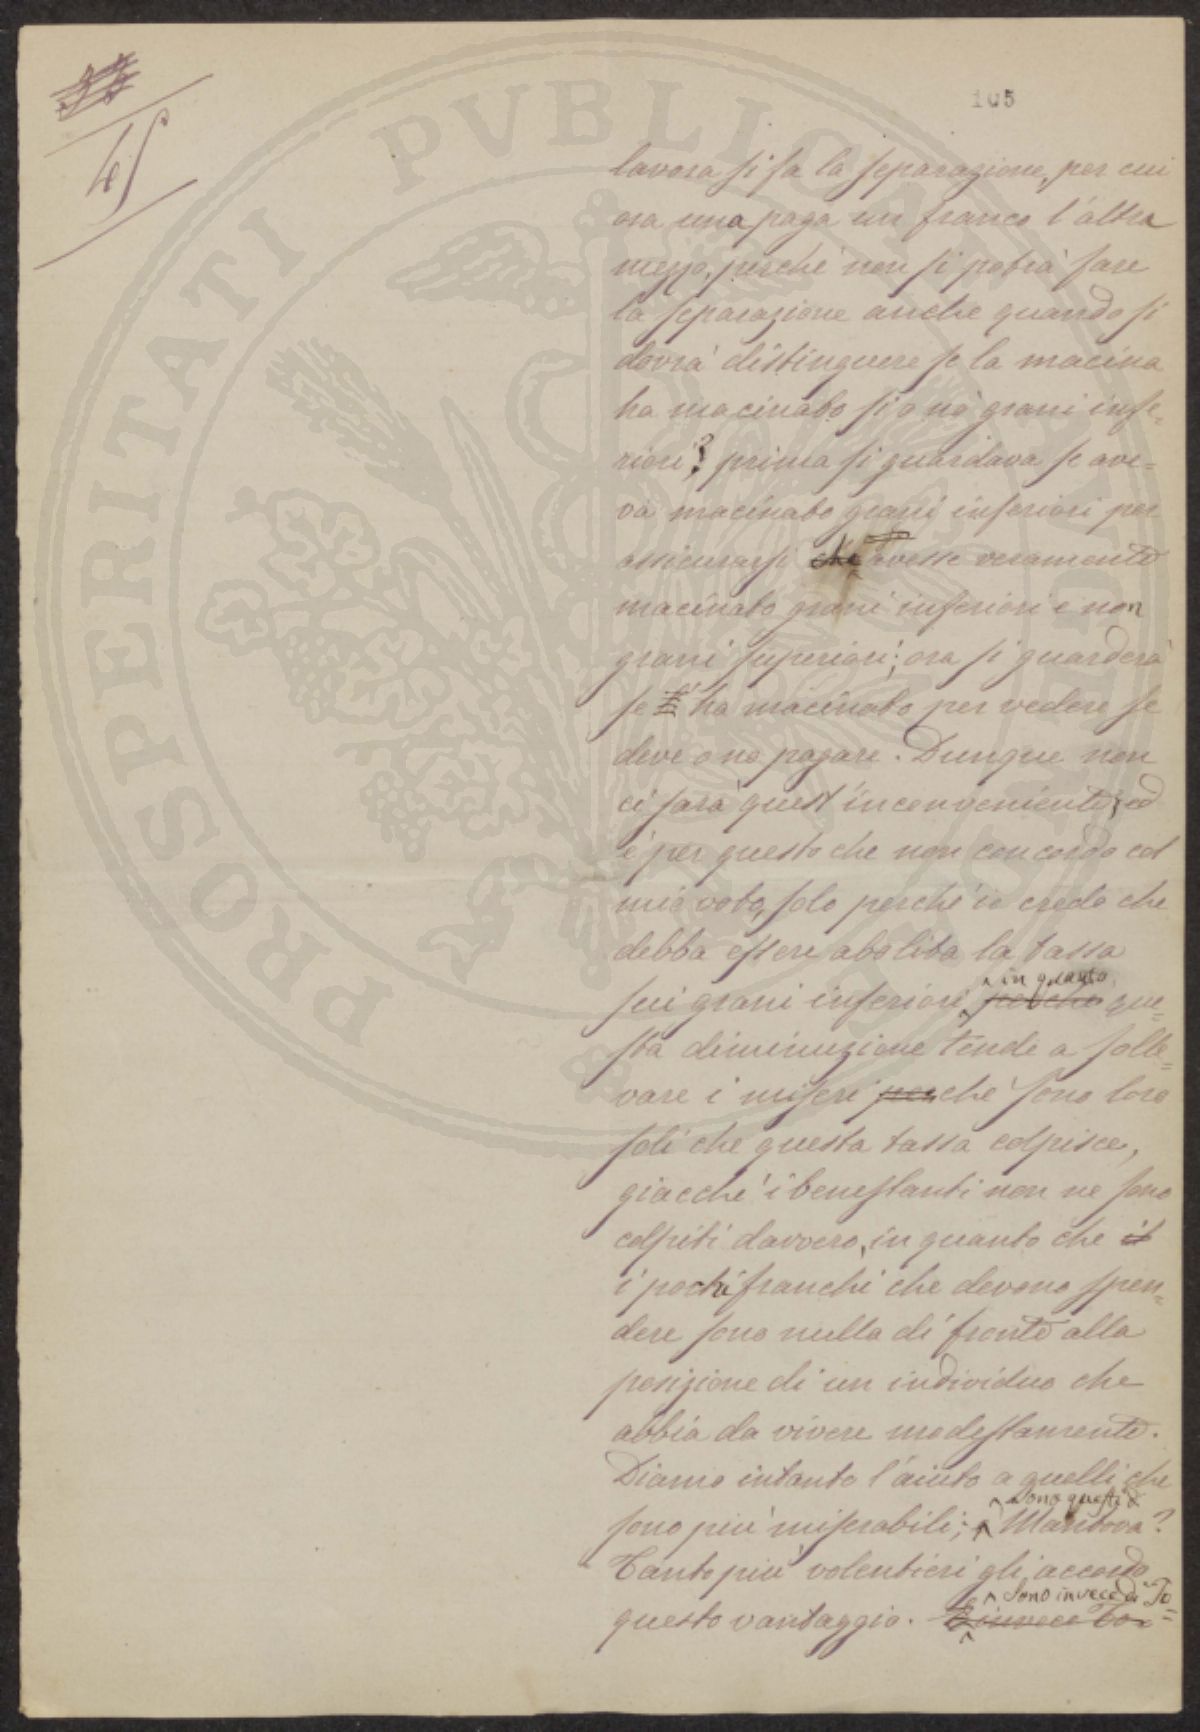 45
105
lavora si fa la separazione, per cui
ora una paga un franco l'altra
mezzo, perché non si potrà fare
la separazione anche quando si
dovrà distinguere se la macina
ha macinato si o no grani infe=
riori? prima si guardava se ave=
va macinato grani inferiori per
assicurarsi che avesse veramente
macinato grani inferiori e non
grani superiori; ora si guarderà
se ha macinato per vedere se
deve o no pagare. Dunque non
ci sarà quest'inconveniente, ed
è per questo che non concordo col
mio voto, solo perché io credo che
debba essere abolita la tassa
in quanto
sui grani inferiori, perché que=
sta diminuzione tende a solle=
vare i miseri perché sono loro
soli che questa tassa colpisce,
giacché i benestanti non ne sono
colpiti davvero, in quanto che il
i pochi franchi che devono spen=
dere sono nulla di fronte alla
posizione di un individuo che
abbia da vivere modestamente.
Diamo intanto l'aiuto a quelli che
sono questi di
sono più miserabili; Mantova?
Tanto più volentieri gli accordo
Sono invece di To=
questo vantaggio. E invece To=
PROSPERITATI PVBLICAE